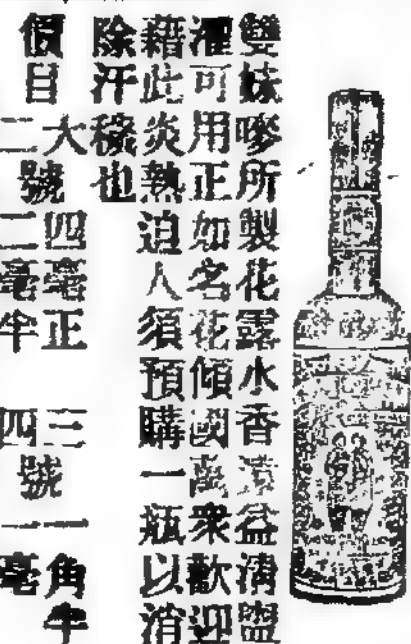 雙妹嘜所製花露水香益清盥
濯可用正如名花傾國萬眾歡迎
藉此炎熱迫人須預購一瓶以消
除汗穢也
價目
大號四毫正 三號一角半
二 二毫半 四 一毫